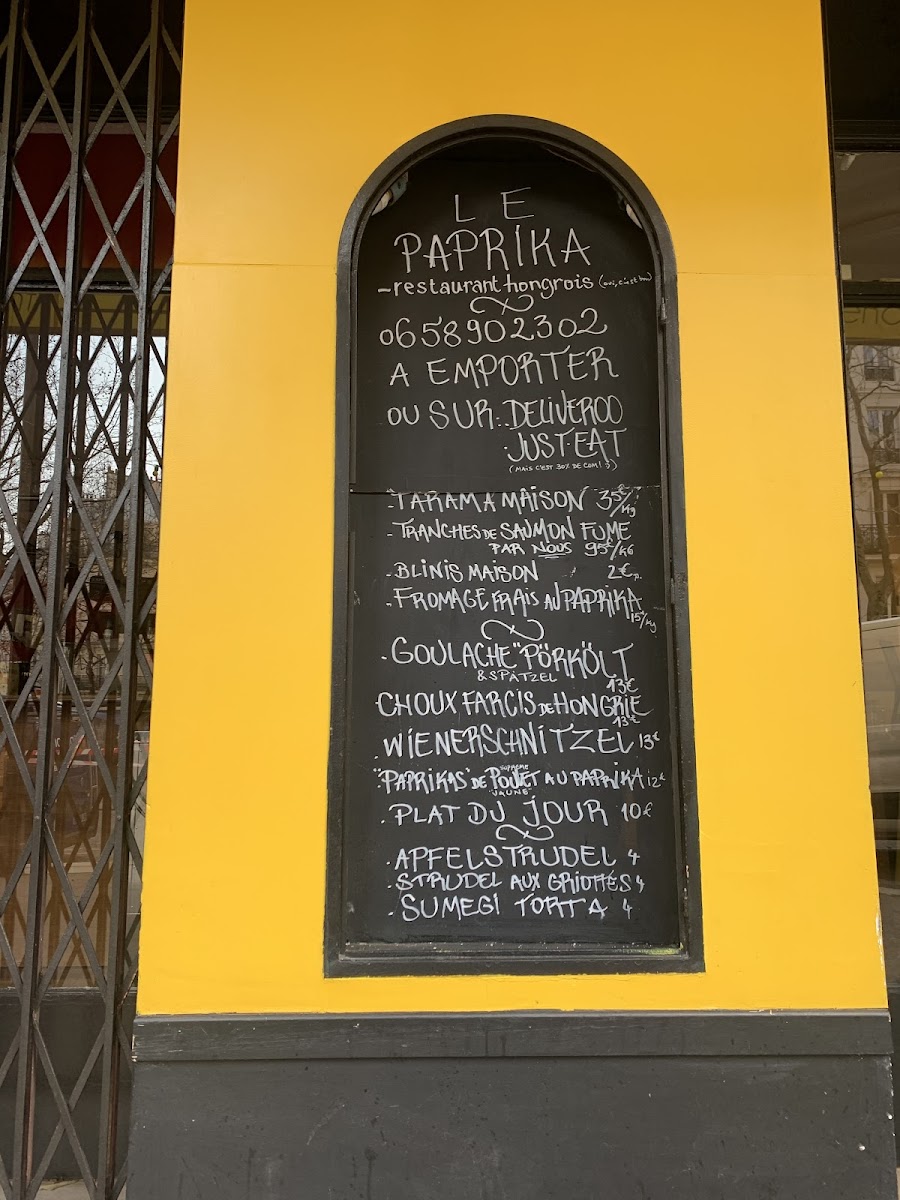 LE
PAPRIKA
-restaurant hongrois (oui, c'est bon)
0658902302
A EMPORTER
OU SUR: DELIVEROO
JUST-EAT
(MAIS C'EST 30% DE COM! :))
-TARAMA MAISON 35€/Kg
-TRANCHES DE SAUMON FUME
PAR NOUS 95€/KG
-BLINIS MAISON 2€
-FROMAGE FRAIS AU PAPRIKA
15€/Kg
.GOULACHE "PÖRKÖLT
& SPÄTZEL
13€
.CHOUX FARCIS DE HONGRIE
13€
.WIENERSCHNITZEL 13€
."PAPRIKAS" DE POULET AU PAPRIKA 12€
SUPREME
JAUNE
.PLAT DU JOUR 10€
.APFELSTRUDEL 4
.STRUDEL AUX GRIOTTES 4
.SUMEGI TORTA 4